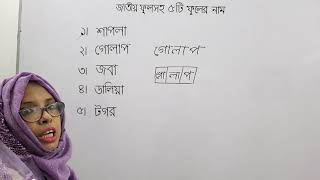 জাতীয় ফুলসহ ৫টি ফুলের নাম
১। শাপলা
২। গোলাপ গোলাপ
৩। জবা গোলাপ
৪। ডালিয়া
৫। টগর